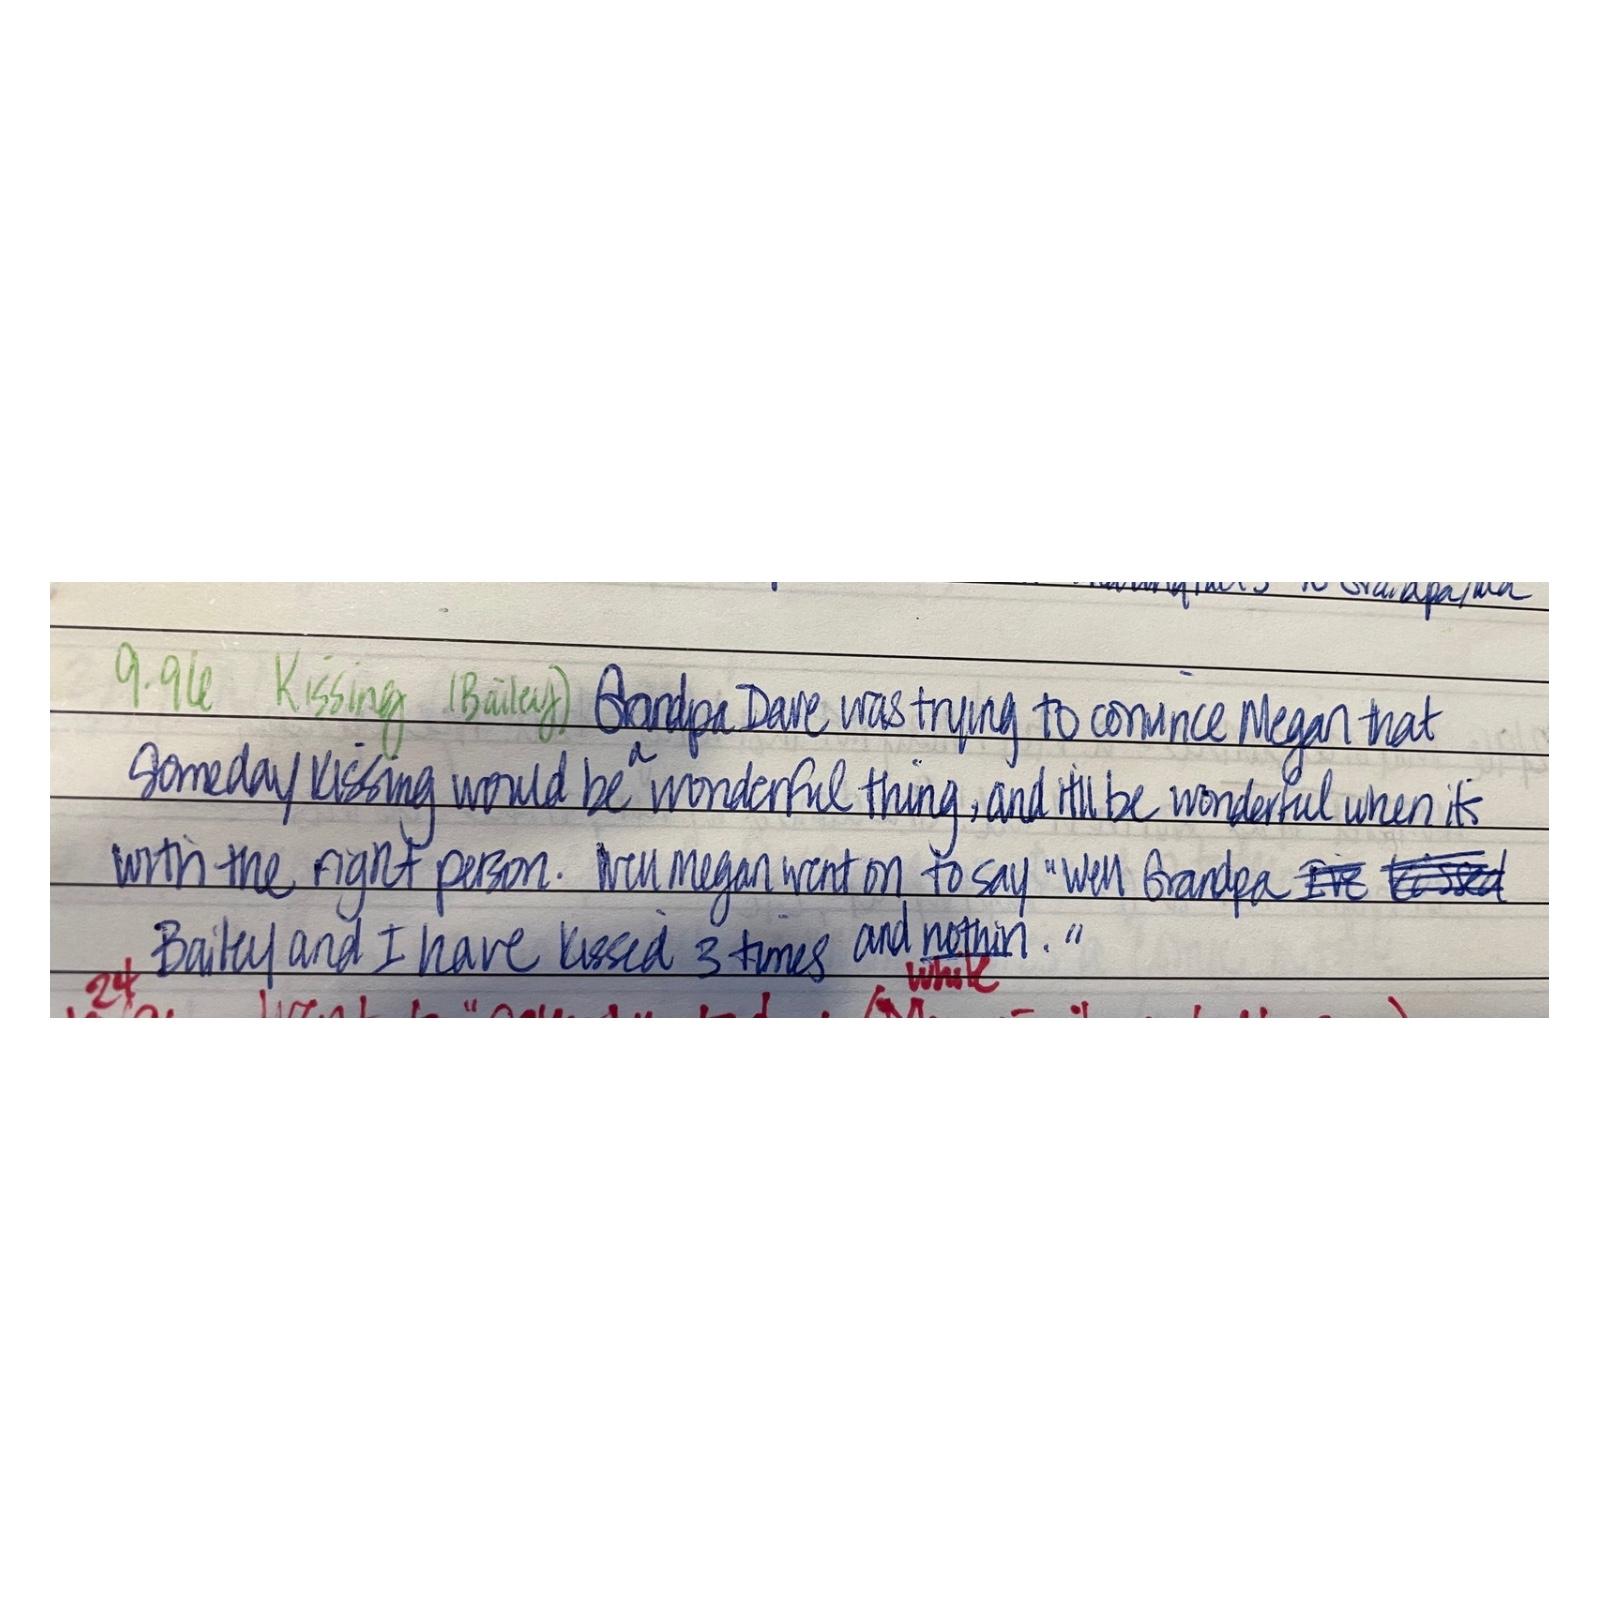 Grandpa/ma
9.96 Kissing (Bailey) Grandpa Dave was trying to convince Megan that
Someday kissing would be a wonderful thing, and itll be wonderful when its
with the right person. Well Megan went on to say "Well Grandpa I've kissed
Bailey and I have kissed 3 times and nothin."
while
24